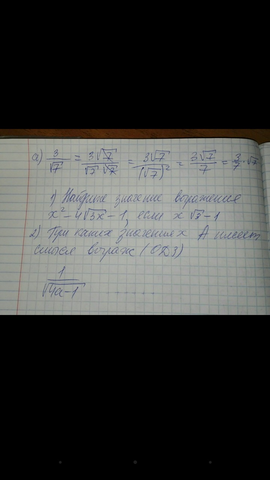 а) 3/√7 = 3√7/√7·√7 = 3√7/(√7)² = 3√7/7 = 3/7·√7
1) Найдите значение выражения
x²-4√3x-1, если x √3-1
2) При каких значениях А имеет
смысл выраж (ОДЗ)
1/√4a-1